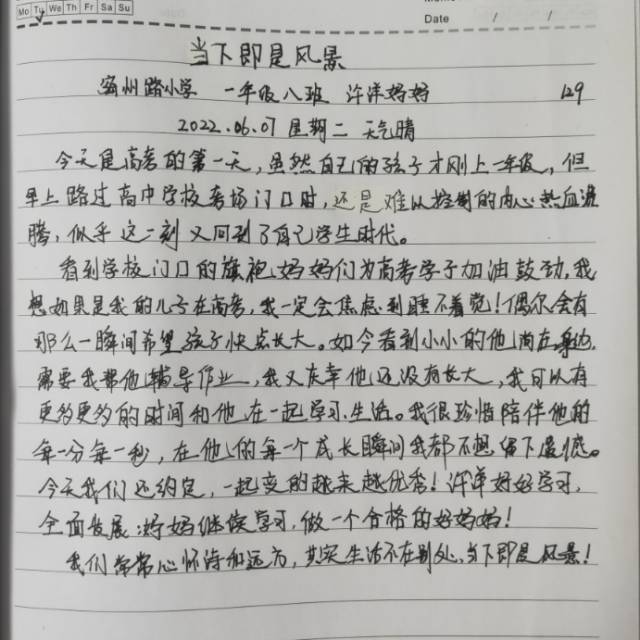 Mo Tu We Th Fr Sa Su
Date / /
当下即是风景
路小学 一年级八班 许洋妈妈 129
2022.06.07 星期二 天气晴
今天是高考的第一天,虽然自己的孩子才刚上一年级,但
早上路过高中学校考场门口时,还是难以控制的内心热血沸
腾,似乎这一刻又回到了自己学生时代。
看到学校门口的旗袍妈妈们为高考学子加油鼓劲,我
想如果是我的儿子在高考,我一定会焦虑到睡不着觉!偶尔会有
那么一瞬间希望孩子快点长大。如今看到小小的他尚在身边,
需要我帮他辅导作业,我又庆幸他还没有长大,我可以有
更多更多的时间和他在一起学习、生活。我很珍惜陪伴他的
每一分每一秒,在他的每一个成长瞬间我都不想留下遗憾。
今天我们还约定,一起变的越来越优秀!许洋好好学习,
全面发展;妈妈继续学习,做一个合格的好妈妈!
我们常常心怀诗和远方,其实生活不在别处,当下即是风景!